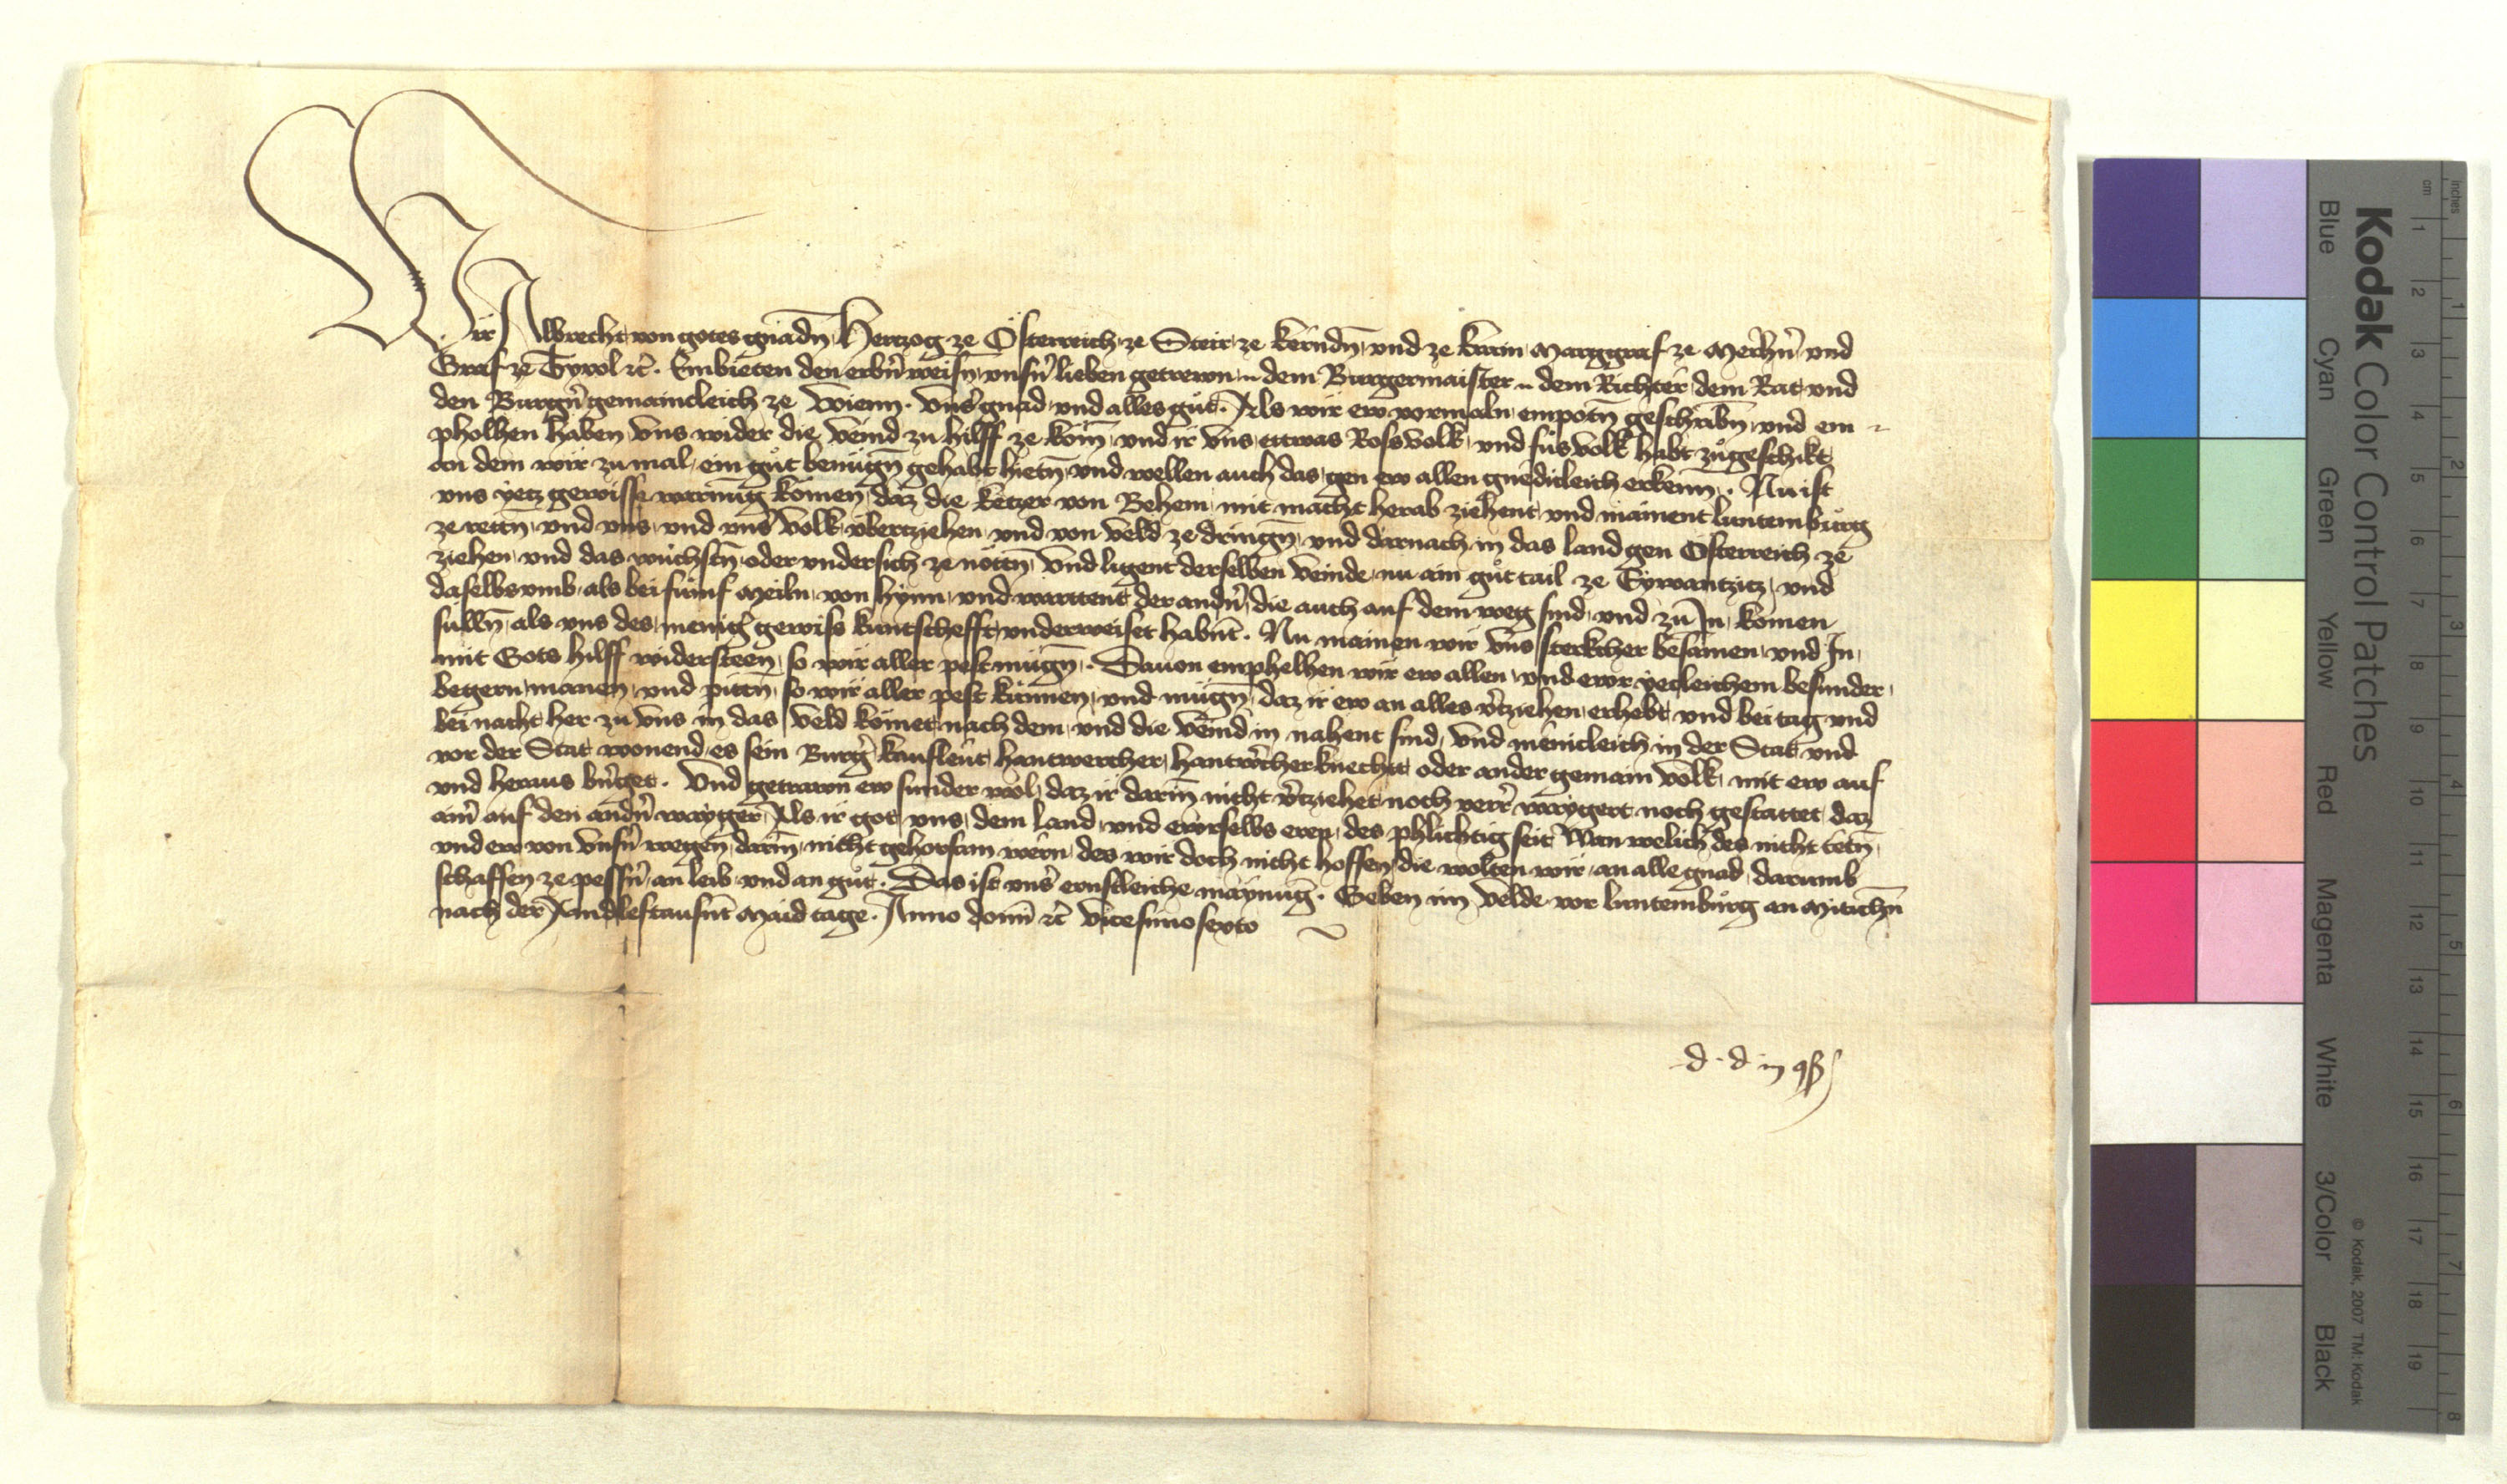 Wir Albrecht von gotes gnadn̄ Hertzog ze Österreich ze Steir ze kerndn̄ und ze krain Marggraf ze Merhern̄ und
Graf ze Tyrol ꝛc̄. Embieten den erbn̄ weisn̄ vnsn̄ lieben getrewn .. dem Burgermaister .. dem Richter dem Rat und
den Burgn̄ gemaincleich ze Wienn. Vnser gnad und alles gůt. Als wir ew vormaln empotn̄ geschribn̄ und em
pholhen haben vns wider die veind zu hilff ze kom̄ und ir vns ettwas Rossvolk und fůsvolk habt zůgeschikt
an dem wir zumal ein gůt benůgn̄ gehabt hietn̄ und wellen auch das gen ew allen gnedicleich erkenn̄. Nu ist
vns yetz gewisse warnūg komen daz die ketzer von Behem mit macht herab ziehent und mainent luntemburg
ze rettn̄ und vns und vnser volk überziehen und von veld ze dringn̄ und darnach in das land gen Österreich ze
ziehen und das wüchstn̄ oder undersich ze nöttn̄ Und ligent derselben veinde nu ain gůt tail ze Eywantzitz und
daselbs umb als bei fümf Meiln von hynn und warttent der andn̄ die auch auf dem weg sind und zu In komen
sülln̄ als vns des menig gewiss kuntschefft underweiset habnt. Nu mainen wir vns sterkcher besamen und In
mit Gots hilff widersteen so wir aller pest mügn̄. Dauon emphelhen wir ew allen und ewr yecleichem besunder
begern manen und pittn̄ so wir aller pest künnen und mügn̄ daz ir ew an alles v̄tziehen erhebt und bei tag und
bei nacht her zu vns in das veld komet nach dem und die veind in nahent sind Und menicleich in der Stat und
vor der Stat wonend es sein Burger kaufleut hantwercher hantw̄cherknecht oder ander gemain volk mit ew auf
und heraus bringet. Und getrawn ew sunder wol daz ir darin̄ nicht v̄tziehet noch verrer waygert noch gestattet daz
ain̄ auf den andn̄ wayger Als ir got vns dem land und ewrselbs eren des phlichtig seit Wan welich des nicht tetn̄
und ew von vnsn̄ wegen darin̄ nicht gehorsam wern des wir doch nicht hoffen die wolten wir an alle gnad darumb
schaffen ze pessn̄ an leib und an gůt. Das ist vnser ernstleiche maynūg. Geben im velde vor luntemburg an Mitichn̄
nach der Aindleftausnt Maid tage. Anno domī ꝛc̄ vicesimosexto
d. d. in
Kodak Color Control Patches
Blue Cyan Green Yellow Red Magenta White 3/Color Black
© Kodak, 2007 TM: Kodak
inches 1 2 3 4 5 6 7 8
cm 1 2 3 4 5 6 7 8 9 10 11 12 13 14 15 16 17 18 19